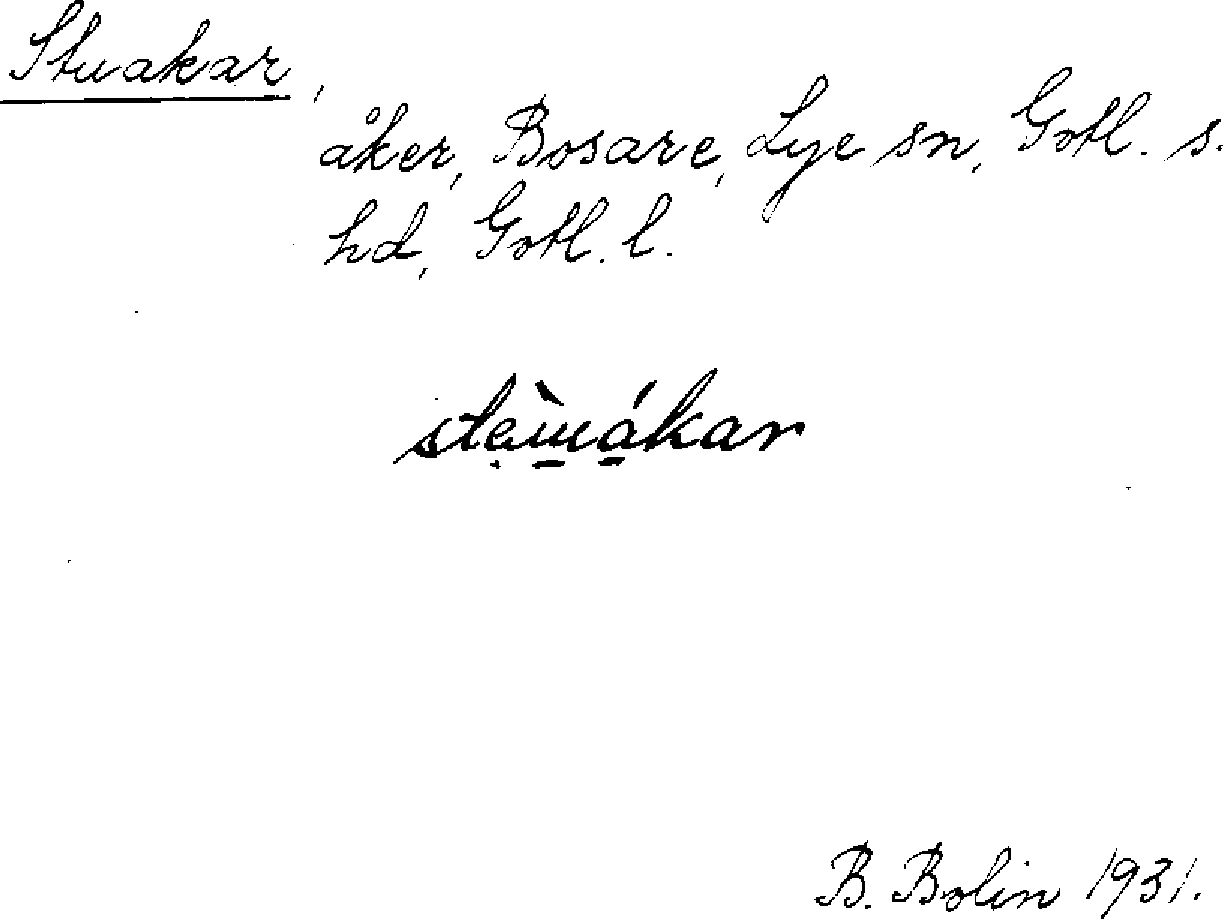 Stuakar,
åker, Bosare, Lye sn, Gotl. s.
hd, Gotl. l.
B. Bolin 1931.